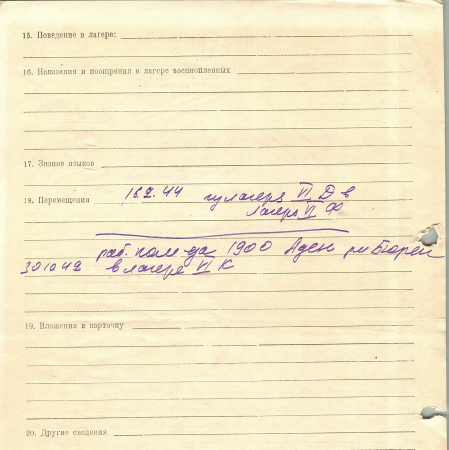 15. Поведение в лагере:
16. Наказания и поощрения в лагере военнопленных
17. Знание языков
18. Перемещения 16.2.44 из лагеря VI Д в
лагерь VI Ф
раб. ком-да 1900
30 10 42 в лагере VI К
19. Вложения в карточку
20. Другие сведения